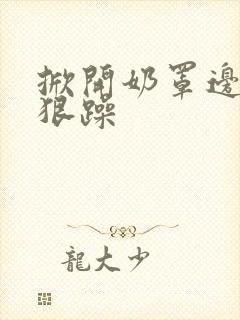 掀開奶罩邊
狠躁
龍大少